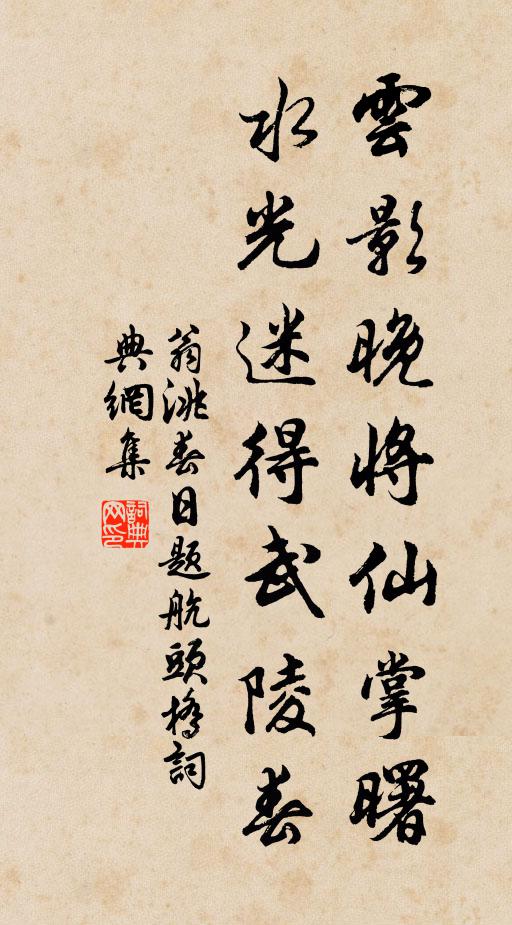 雲影晚將仙掌曙
水光迷得武陵春
翁洮春日題航頭橋詞
典網集
詞典
网印